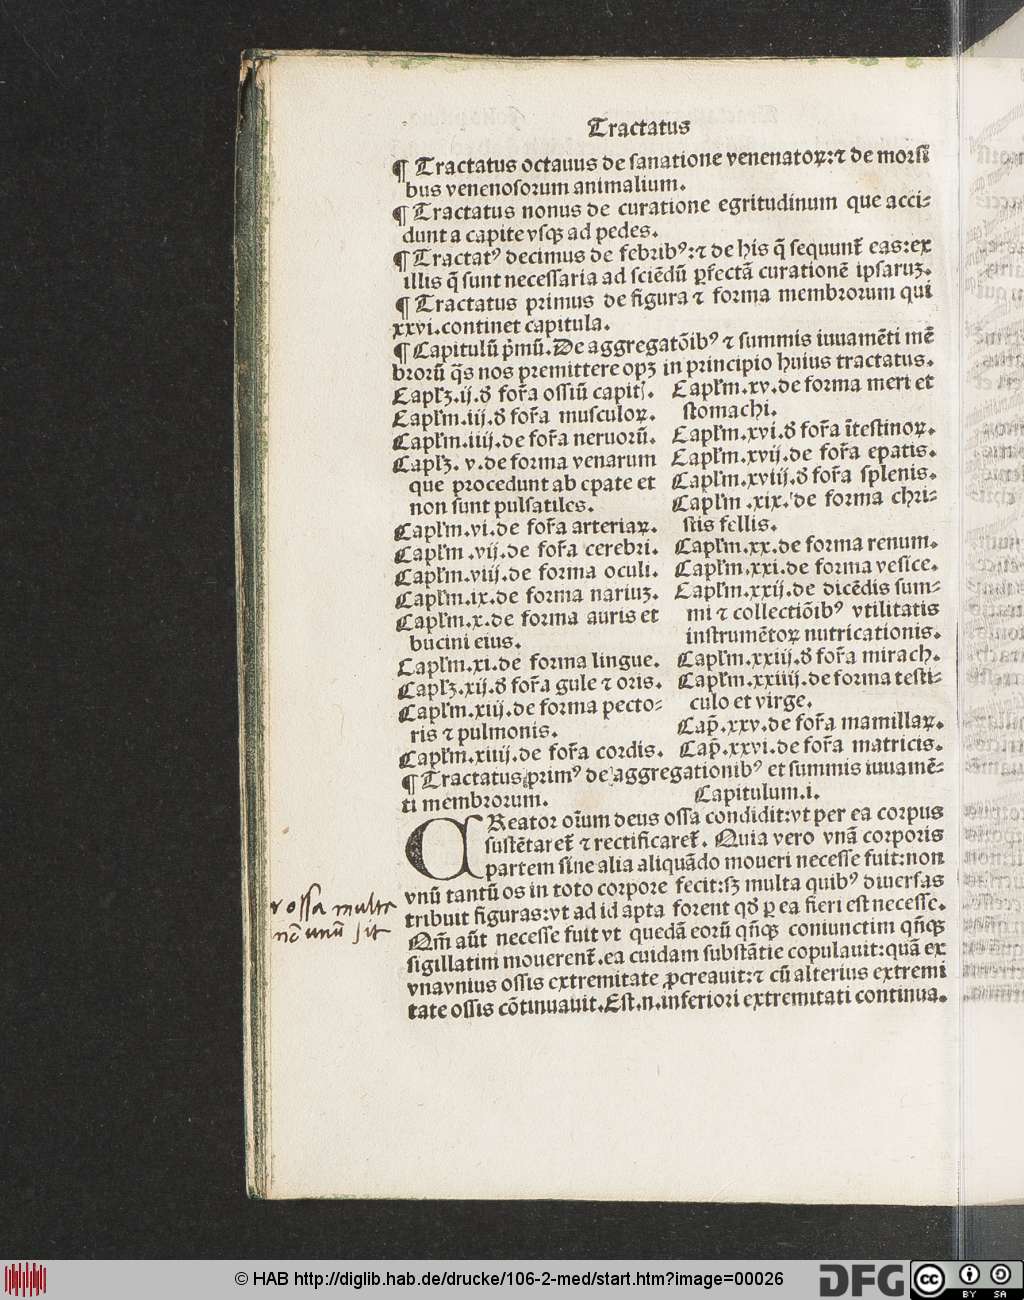 Tractatus
¶ Tractatus octauus de sanatione venenatoꝝ:⁊ de morsi
bus venenosorum animalium.
¶ Tractatus nonus de curatione egritudinum que acci-
dunt a capite vsqꝫ ad pedes.
¶ Tractatꝰ decimus de febribꝰ:⁊ de his q̄ sequunt̄ eas:ex
illis q̄ sunt necessaria ad sciēdū ꝑfectā curationē ipsaruꝫ.
¶ Tractatus primus de figura ⁊ forma membrorum qui
xxvi.continet capitula.
¶ Capitulū p̄mū.De aggregatōibꝰ ⁊ summis iuuamēti mē
brorū q̄s nos premittere opꝫ in principio huius tractatus.
Capl̄ꝫ.ij.ð for̄a ossiū capit̄.
Capl̄m.iij.ð for̄a musculoꝝ.
Capl̄m.iiij.de for̄a neruorū.
Capl̄ꝫ. v.de forma venarum
que procedunt ab epate et
non sunt pulsatiles.
Capl̄m.vi.de for̄a arteriaꝝ.
Capl̄m .vij.de for̄a cerebri.
Capl̄m.viij.de forma oculi.
Capl̄m.ix.de forma nariuꝫ.
Capl̄m.x.de forma auris et
bucini eius.
Capl̄m.xi.de forma lingue.
Capl̄ꝫ.xij.ð for̄a gule ⁊ oris.
Capl̄m.xiij.de forma pecto-
ris ⁊ pulmonis.
Capl̄m.xiiij.de for̄a cordis.
Capl̄m.xv.de forma meri et
stomachi.
Capl̄m.xvi.ð for̄a ītestinoꝝ.
Capl̄m.xvij.de for̄a epatis.
Capl̄m.xviij.ð for̄a splenis.
Capl̄m .xix.de forma chri-
stis fellis.
Capl̄m.xx.de forma renum.
Capl̄m.xxi.de forma vesice.
Capl̄m.xxij.de dicēdis sum-
mi ⁊ collectiōibꝰ vtilitatis
instrumētoꝝ nutricationis.
Capl̄m.xxiij.ð for̄a mirach.
Capl̄m.xxiiij.de forma testi-
culo et virge.
Cap̄.xxv.de for̄a mamillaꝝ.
Cap̄.xxvi.de for̄a matricis.
¶ Tractatus primꝰ de aggregationibꝰ et summis iuuamē-
ti membrorum. Capitulum.i.
CReator oīum deus ossa condidit:vt per ea corpus
sustētaret̄ ⁊ rectificaret̄. Quia vero vnā corporis
partem sine alia aliquādo moueri necesse fuit:non
vnū tantū os in toto corpore fecit:sꝫ multa quibꝰ diuersas
tribuit figuras:vt ad id apta forent qð ꝑ ea fieri est necesse.
Qm̄ aūt necesse fuit vt quedā eorū qn̄qꝫ coniunctim qn̄qꝫ
sigillatim mouerent̄.ea cuidam substātie copulauit:quā ex
vnaunius ossis extremitate ꝓcreauit:⁊ cū alterius extremi
tate ossis cōtinuauit.Est.n.inferiori extremitati continua.
ossa multa
nō unū sit
© HAB http://diglib.hab.de/drucke/106-2-med/start.htm?image=00026
DFG
cc BY SA